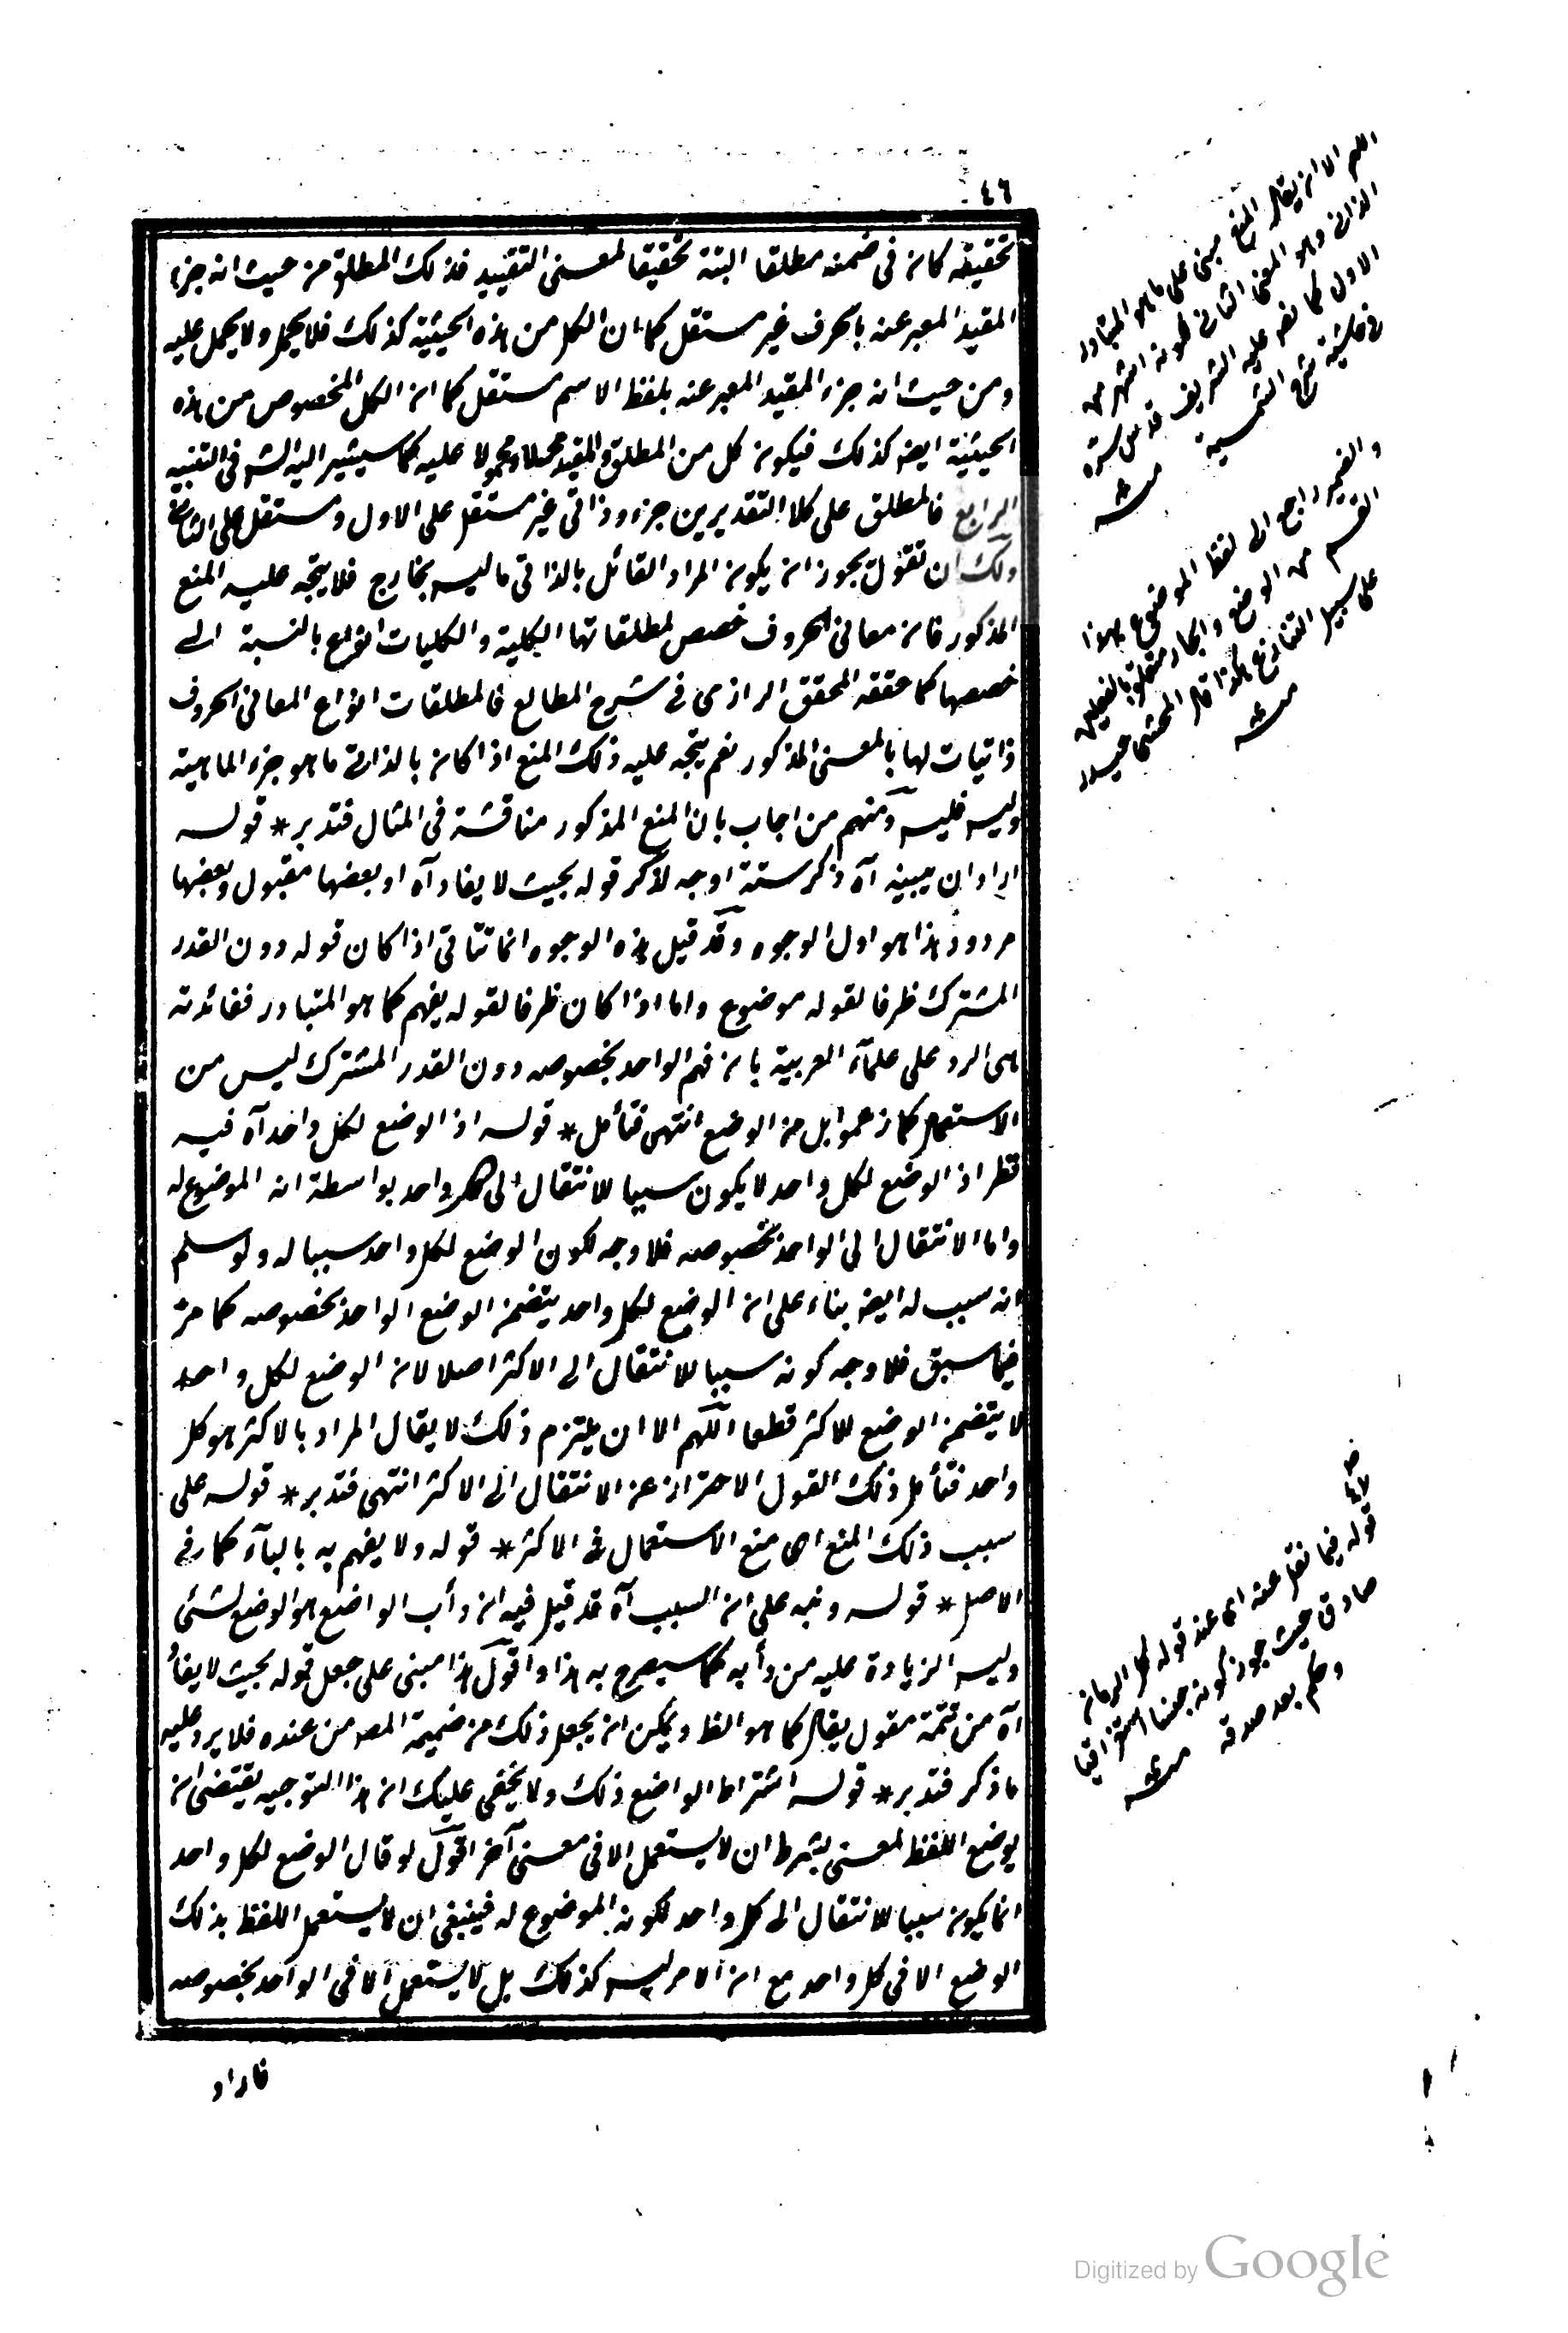 ٤٦
تحقيقه كان فى ضمنه مطلقا البتة تحقيقا لمعنى التقييد فذلك المطلق من حيث انه جزء
المقيد المعبر عنه بالحرف غير مستقل كما ان الكل من هذه الحيثية كذلك فلا يحمل ولا يحمل عليه
ومن حيث انه جزء المقيد المعبر عنه بلفظ الاسم مستقل كما ان الكل المخصوص من هذه
الحيثية ايضا كذلك فيكون كل من المطلق والمقيد محمولا عليه كما سيشير اليه الش فى التنبيه
الرابع فالمطلق على كلا التقديرين جزء وذاتى غير مستقل على الاول ومستقل على الثانى
ولك ان تقول يجوز ان يكون المراد القائل بالذاتى ما ليس بخارج فلا يتجه عليه المنع
المذكور فان معانى الحروف حصص لمطلقاتها الكلية والكليات انواع بالنسبة الى
حصصها كما حققه المحقق الرازى فى شرح المطالع فالمطلقات انواع المعانى الحروف
ذاتيات لها بالمعنى المذكور نعم يتجه عليه ذلك المنع اذا كان بالذاتى ما هو جزء الماهية
وليس فليس ومنهم من اجاب بان المنع المذكور مناقشة فى المثال فتدبر * قوله
اراد ان يبينه آه ذكر ستة اوجه لذكر قوله بحيث لا يفاد آه او بعضها مقبول وبعضها
مردود هذا هو اول الوجوه وقد قيل هذه الوجوه انما تتاتى اذا كان قوله دون القدر
المشترك ظرفا لقوله موضوع واما اذا كان ظرفا لقوله يفهم كما هو المتبادر ففائدته
هى الرد على علمآء العربية بان فهم الواحد بخصوصه دون القدر المشترك ليس من
الاستعمال كما زعموا بل من الوضع انتهى فتأمل * قوله اذ الوضع لكل واحد آه فيه
نظر اذ الوضع لكل واحد لا يكون سببا للانتقال الى كل واحد بواسطة انه الموضوع له
واما الانتقال الى الواحد بخصوصه فلا وجه لكون الوضع لكل واحد سببا له ولو سلم
انه سبب له ايضا بناء على ان الوضع لكل واحد يتضمن الوضع الواحد بخصوصه كما مر
فيما سبق فلا وجه كونه سببا للانتقال الى الاكثر اصلا لان الوضع لكل واحد
لا يتضمن الوضع للاكثر قطعا اللهم الا ان يلتزم ذلك لا يقال المراد بالاكثر هو كل
واحد فتأمل ذلك القول الاحتراز عن الانتقال الى الاكثر انتهى فتدبر * قوله على
سبب ذلك المنع اى منع الاستعمال فى الاكثر * قوله ولا يفهم به بالبآء كما فى
الاصل * قوله ونبه على ان السبب آه قد قيل فيه ان دأب الواضع هو الوضع لشئ
وليس الزيادة عليه من دأبه كما سيصرح به هذا واقول هذا مبنى على جعل قوله بحيث لا يفاد
آه من تتمة مقول يقال كما هو الظ ويمكن ان يجعل ذلك من ضميمة المص من عنده فلا يرد عليه
ما ذكر فتدبر * قوله اشتراط الواضع ذلك ولا يخفى عليك ان هذا التوجيه يقتضى ان
يوضع اللفظ لمعنى بشرط ان لا يستعمل الا فى معنى آخر اقول لو قال الوضع لكل واحد
انما يكون سببا للانتقال الى كل واحد لكونه الموضوع له فينبغى ان لا يستعمل اللفظ بذلك
الوضع الا فى كل واحد مع ان الامر ليس كذلك بل لا يستعمل الا فى الواحد بخصوصه
فاراد
اللهم الا ان يقال المنع مبنى على ما هو المتبادر
الذاتى وهو المعنى الثانى لكونه اشهر من
الاول كما نص عليه الشريف قدس سره
فى حاشية شرح الشمسية منه
والضمير راجع الى لفظ الموضوع هذا
القسم من الوضع والجار متعلق بالفعلين
على سبيل التنازع هكذا قال المحشى حيدر
منه
قوله فيما نقل عنه اى عند قوله كل الرمان
صادق حيث جوز كونه جنسا استغراقيا
وحكم بعد صدقه منه
Digitized by Google